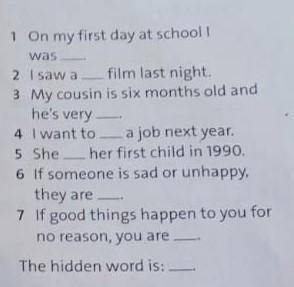 1 On my first day at school I
was ___.
2 I saw a ___ film last night.
3 My cousin is six months old and
he's very ___.
4 I want to ___ a job next year.
5 She ___ her first child in 1990.
6 If someone is sad or unhappy,
they are ___.
7 If good things happen to you for
no reason, you are ___.
The hidden word is: ___.